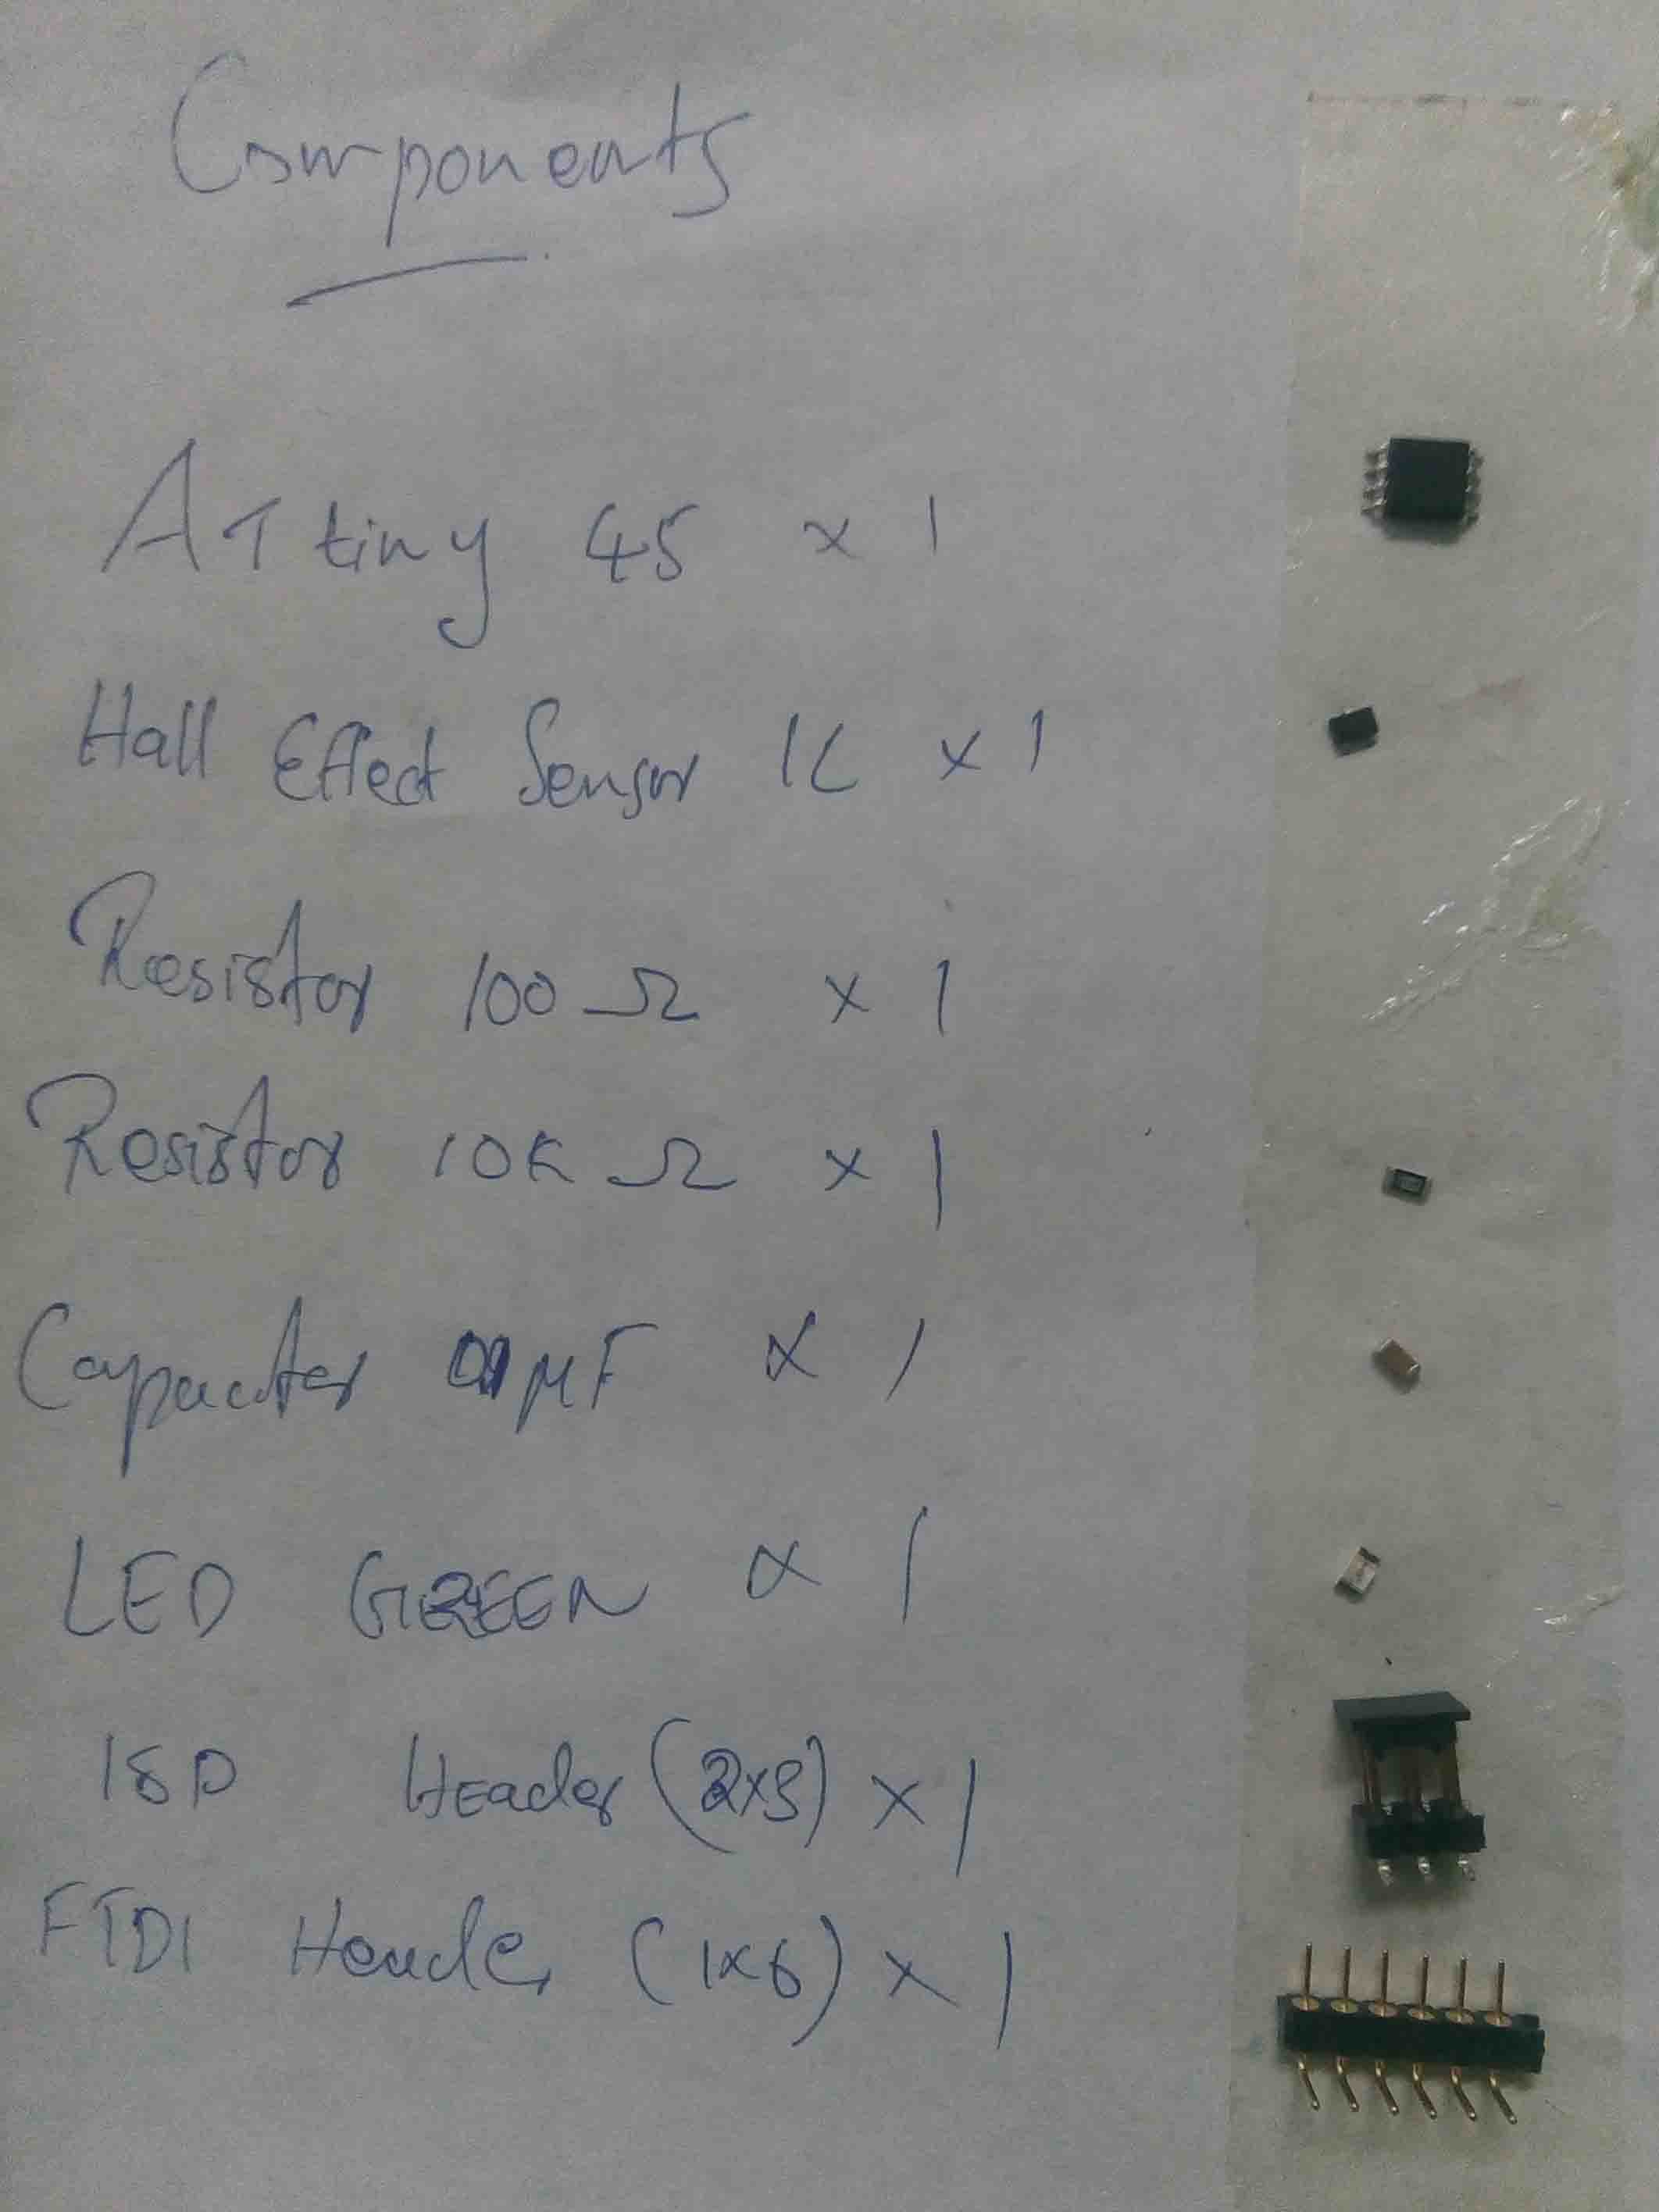 Components
ATtiny 45 x 1
Hall Effect Sensor IC x 1
Resistor 100 Ω x 1
Resistor 10K Ω x 1
Capacitor µF x 1
LED GREEN x 1
ISP Header (2x3) x 1
FTDI Header (1x6) x 1